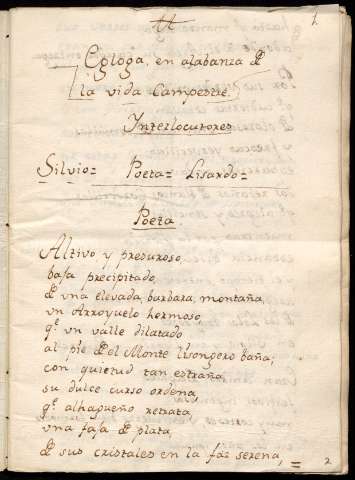 1
Egloga, en alabanza de
la vida Campestre.
Interlocutores
Silvio= Poeta= Lisardo=
Poeta
Altivo y presuroso,
baja precipitado,
de vna elevada, barbara, montaña,
vn Arroyuelo hermoso,
qe. vn valle dilatado
al pie del Monte lisongero baña;
con quietud tan estraña,
su dulce curso ordena,
qe. alhagueño retrata
vna faja de plata
de sus cristales en la faz serena,
2